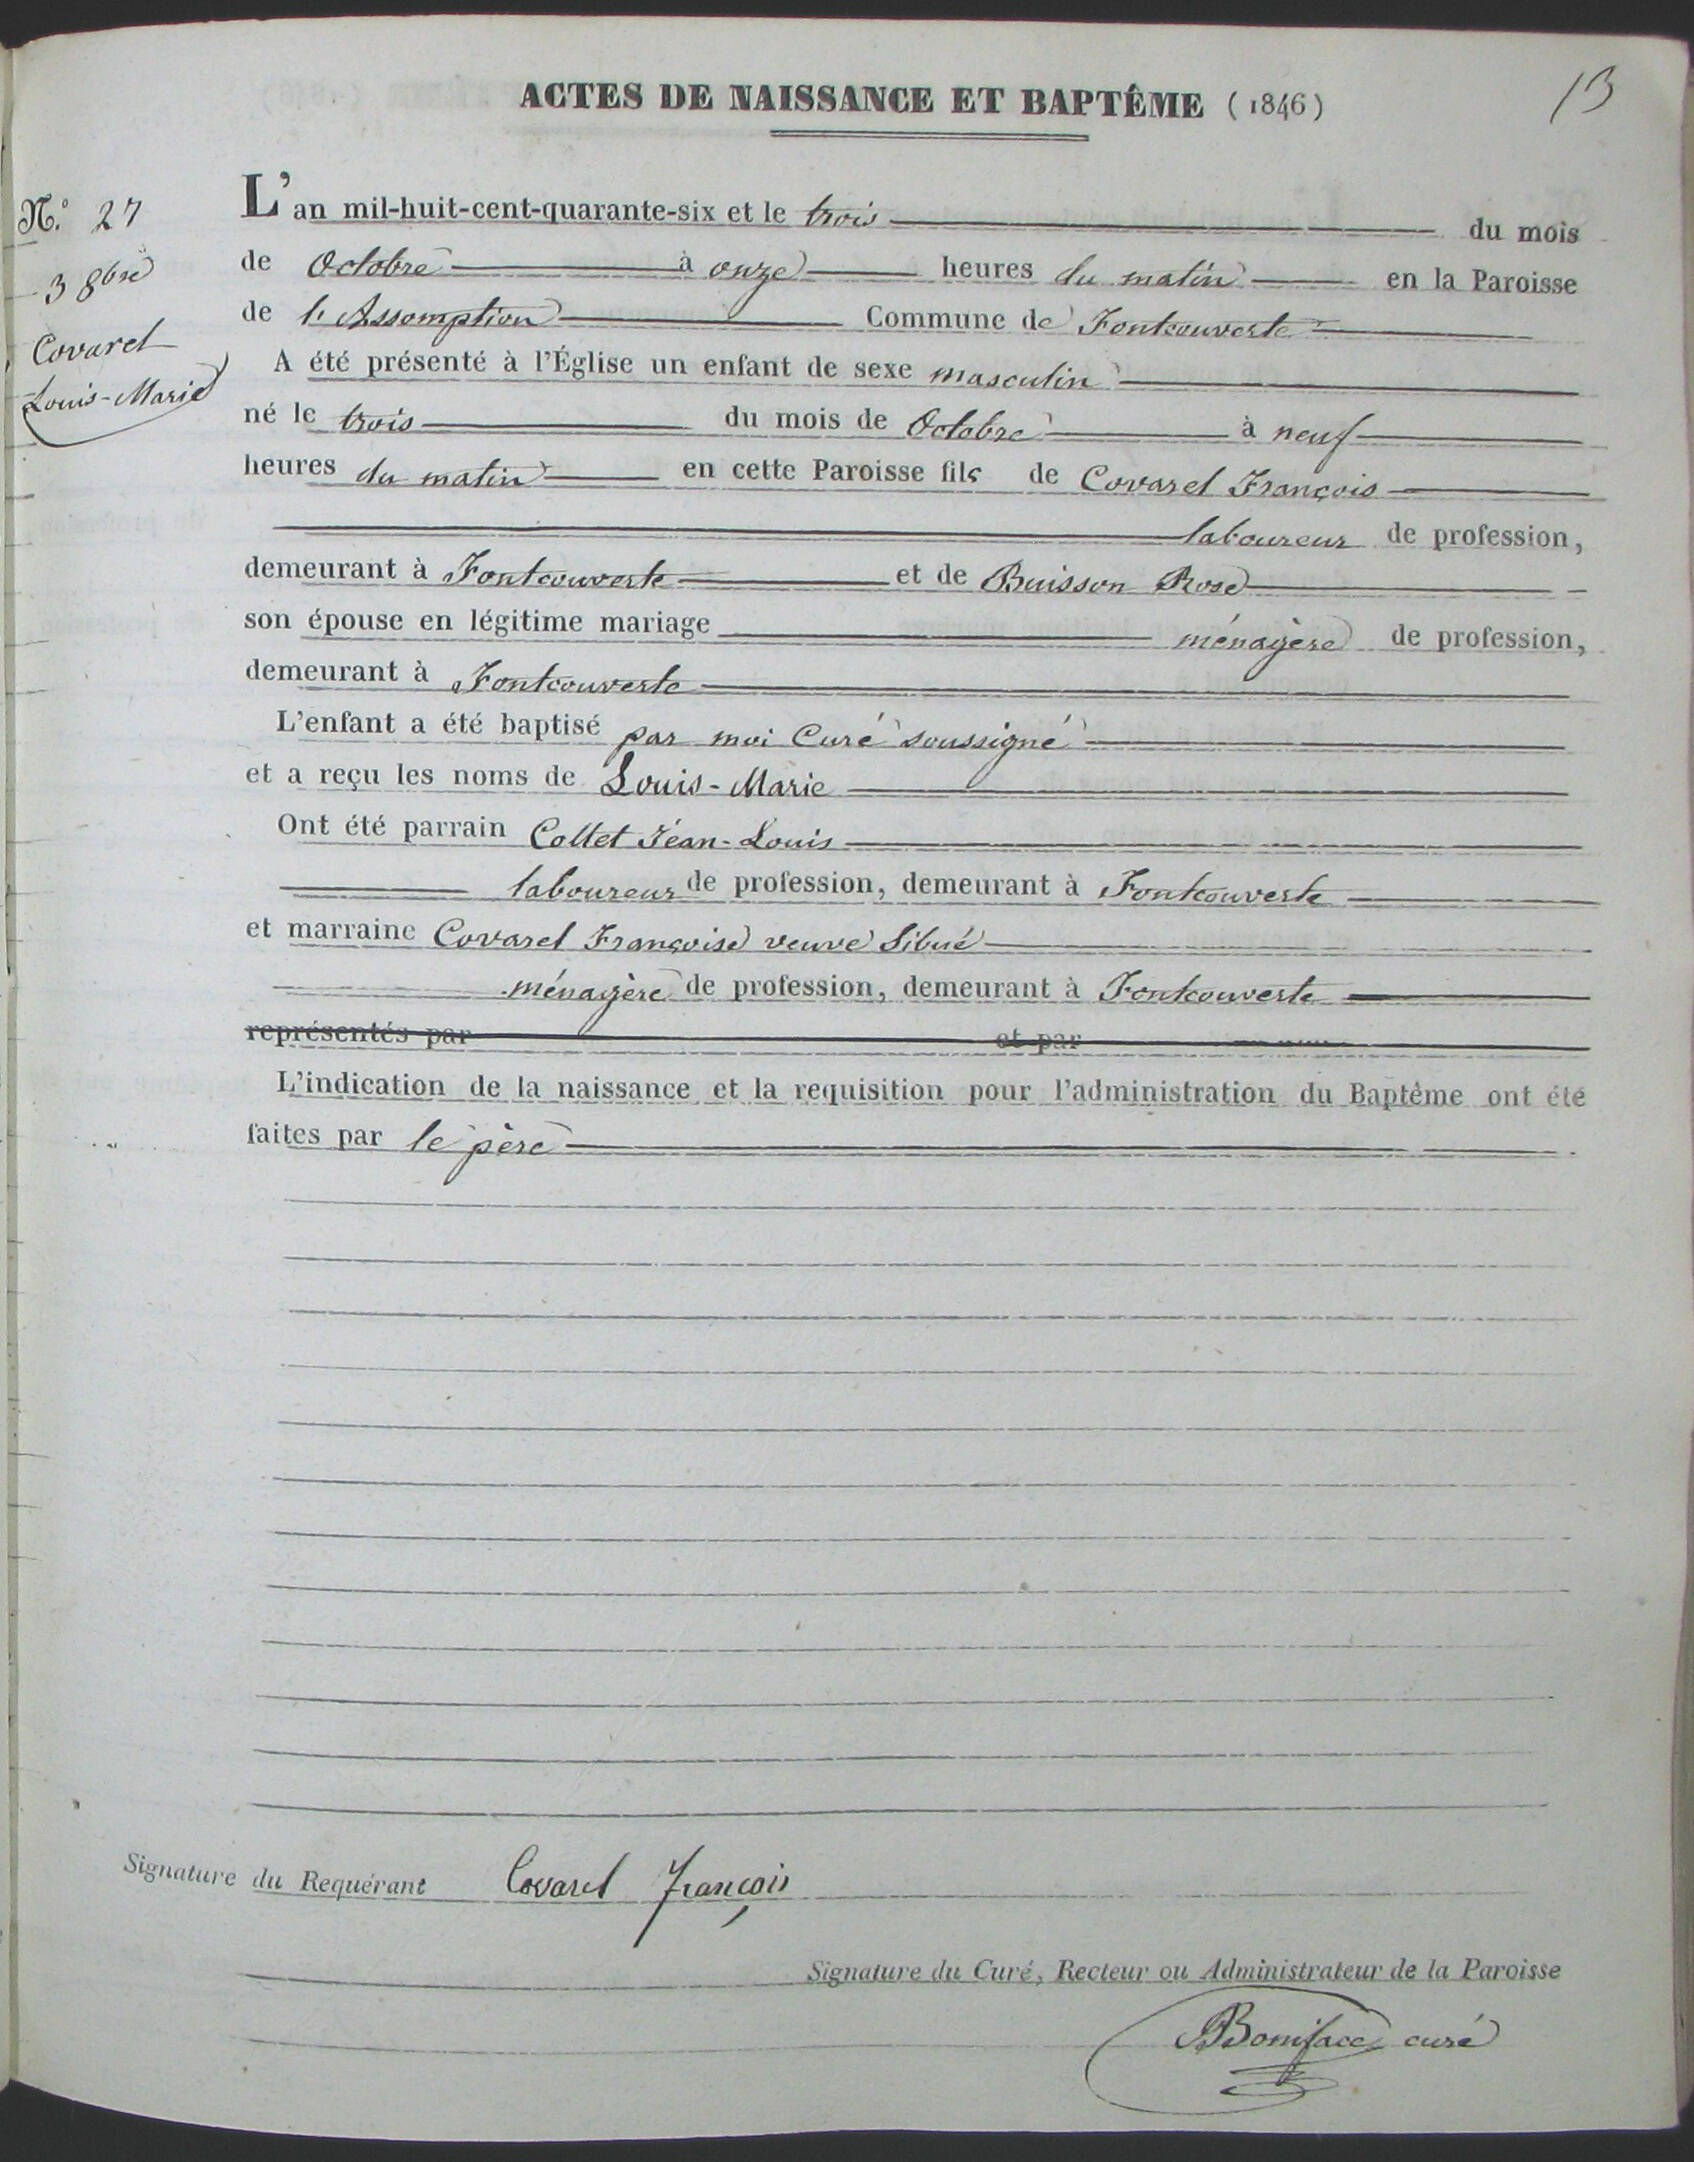 ACTES DE NAISSANCE ET BAPTÊME (1846)
13
N.° 27
3 8bre
Covarel
Louis-Marie
L'an mil-huit-cent-quarante-six et le trois du mois
de Octobre à onze heures du matin en la Paroisse
de l'Assomption Commune de Fontcouverte
A été présenté à l'Église un enfant de sexe masculin
né le trois du mois de Octobre à neuf
heures du matin en cette Paroisse fils de Covarel François
laboureur de profession,
demeurant à Fontcouverte et de Buisson Rose
son épouse en légitime mariage ménagère de profession,
demeurant à Fontcouverte
L'enfant a été baptisé par moi Curé soussigné
et a reçu les noms de Louis-Marie
Ont été parrain Collet Jean-Louis
laboureur de profession, demeurant à Fontcouverte
et marraine Covarel Françoise veuve Sibué
ménagère de profession, demeurant à Fontcouverte
représentés par et par
L'indication de la naissance et la requisition pour l'administration du Baptême ont été
faites par le père
Signature du Requérant Covarel François
Signature du Curé, Recteur ou Administrateur de la Paroisse
Boniface curé